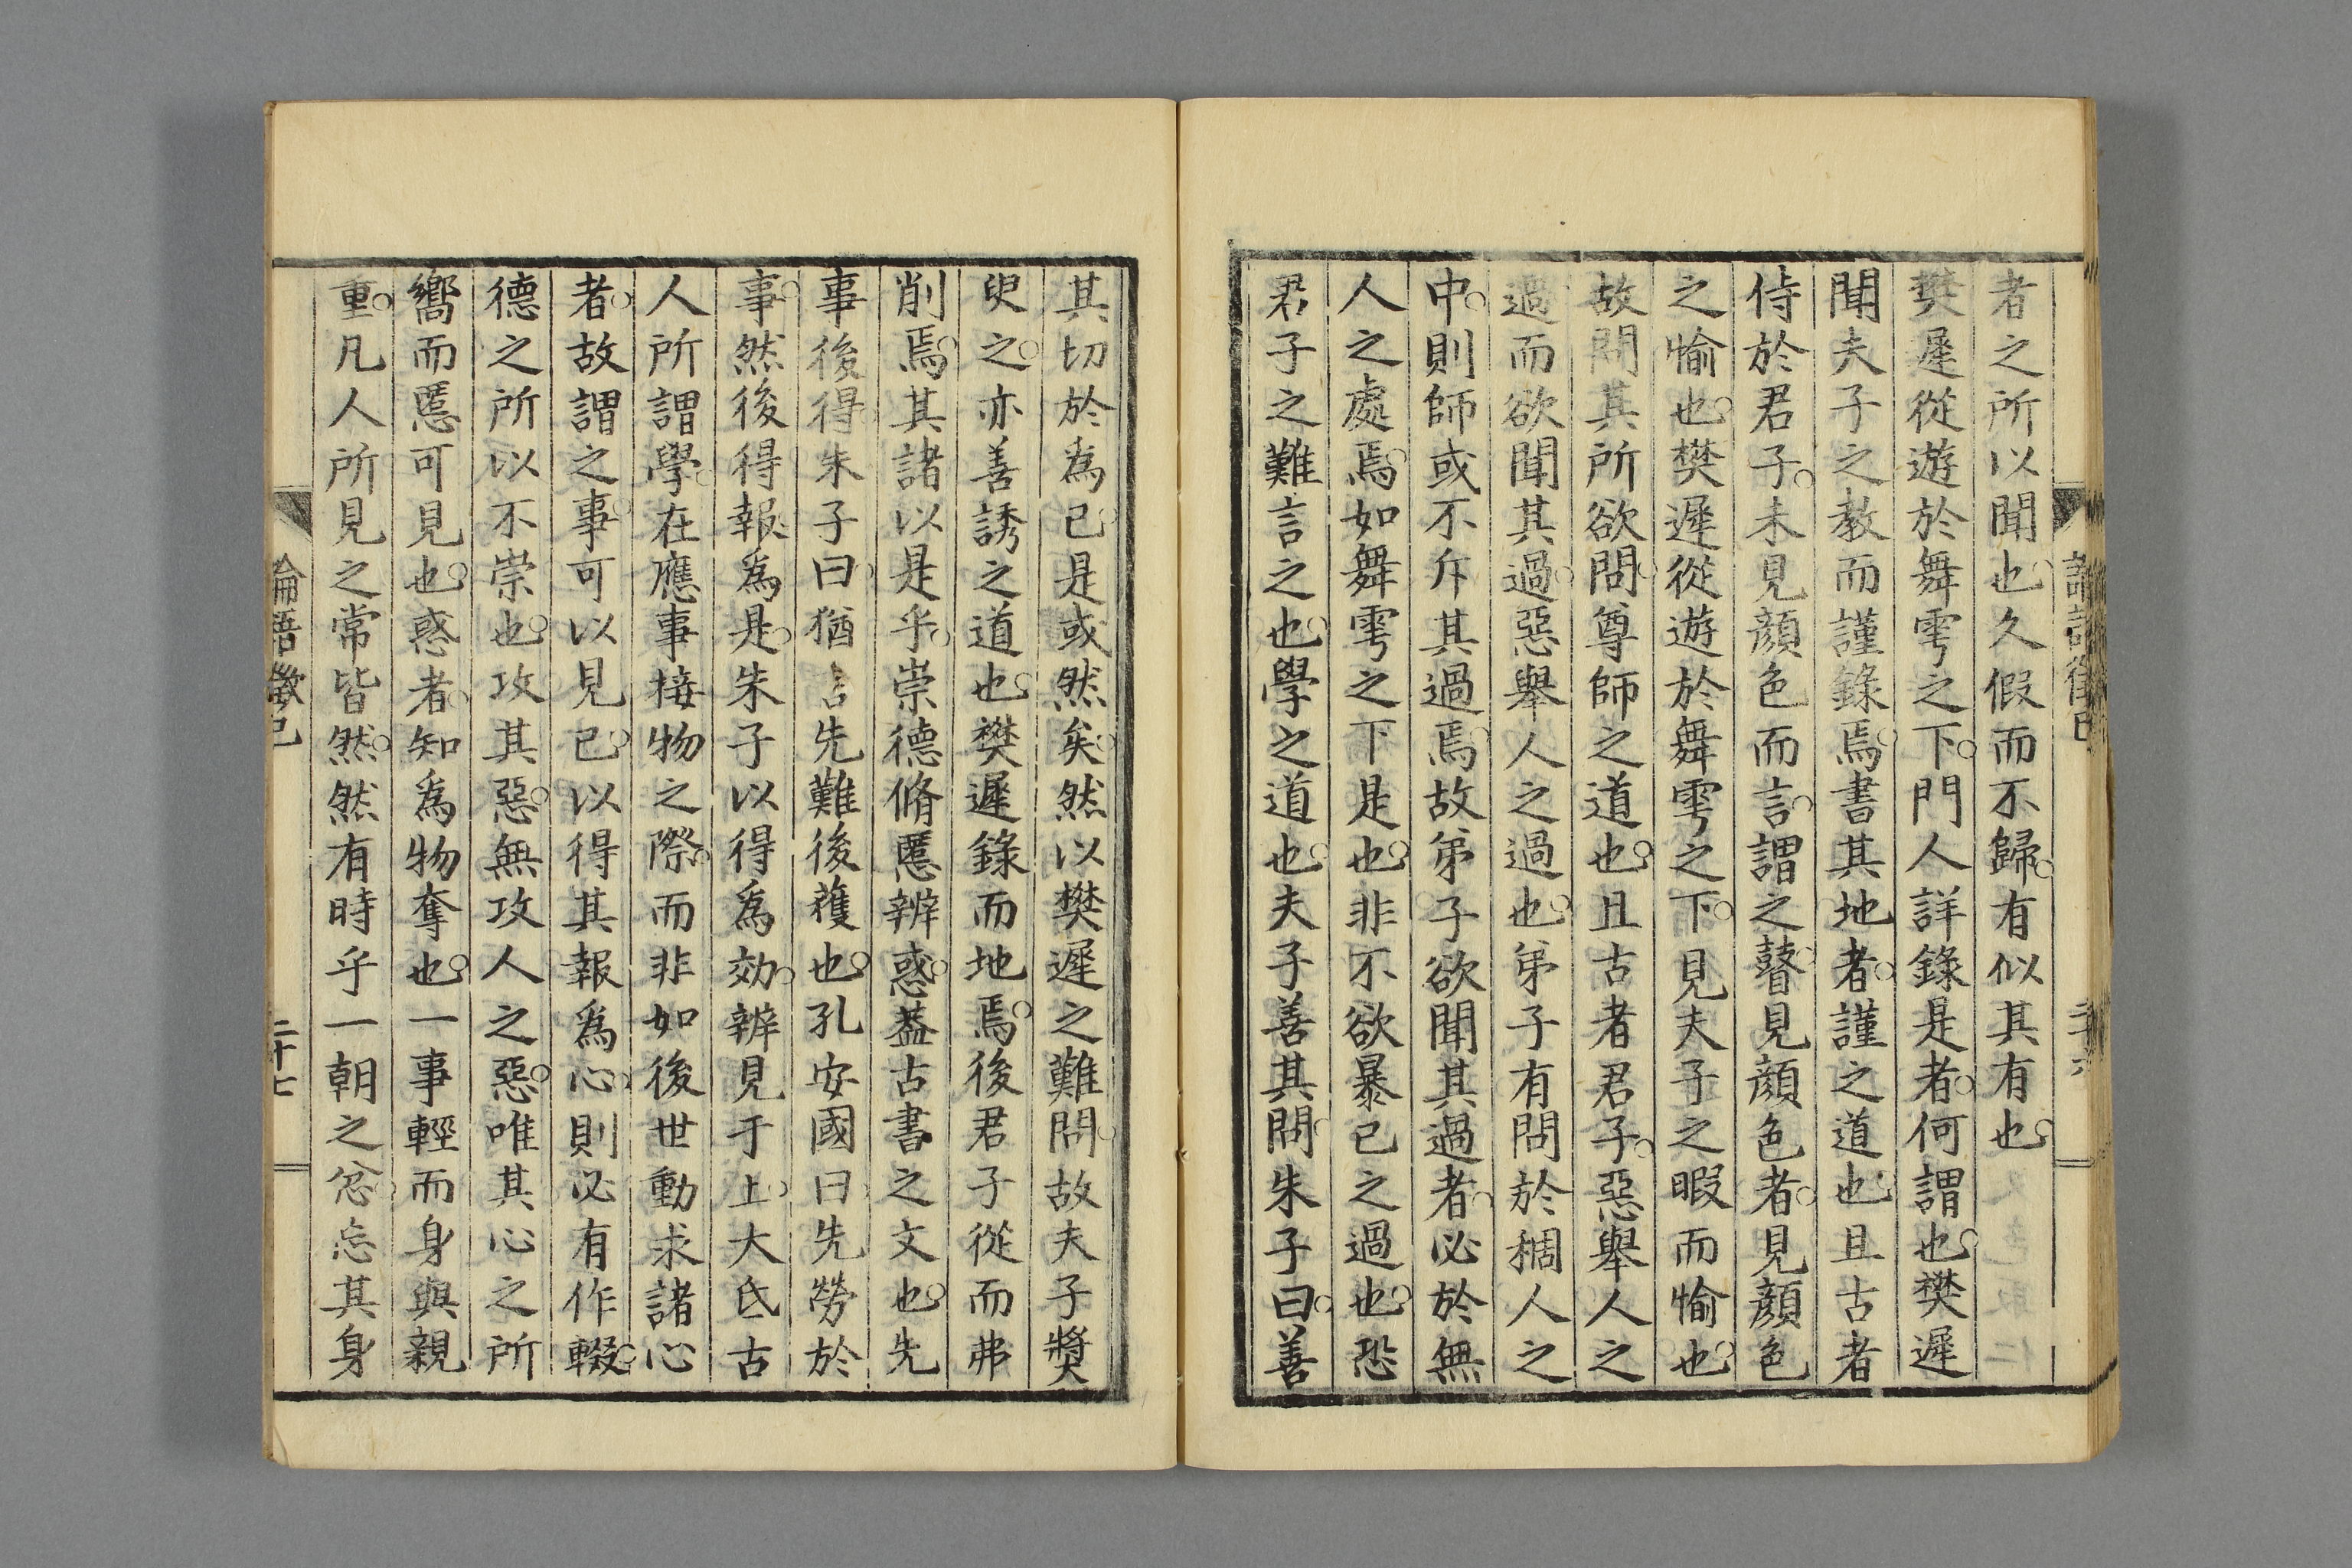 者之所以聞也久假而不歸有似其有也
樊遲從遊於舞雩之下門人詳錄是者何謂也樊遲
聞夫子之教而謹錄焉書其地者謹之道也且古者
侍於君子未見顏色而言謂之瞽見顏色者見顏色
之愉也樊遲從遊於舞雩之下見夫子之暇而愉也
故問其所欲問尊師之道也且古者君子惡舉人之
過而欲聞其過惡舉人之過也弟子有問於稠人之
中則師或不斥其過焉故弟子欲聞其過者必於無
人之處焉如舞雩之下是也非不欲暴已之過也恐
君子之難言之也學之道也夫子善其問朱子曰善
其切於爲已是或然矣然以樊遲之難問故夫子奬
臾之亦善誘之道也樊遲錄而地焉後君子從而弗
削焉其諸以是乎崇德脩慝辨惑葢古書之文也先
事後得朱子曰猶言先難後獲也孔安國曰先勞於
事然後得報爲是朱子以得爲効辨見于上大氐古
人所謂學在應事接物之際而非如後世動求諸心
者故謂之事可以見已以得其報爲心則必有作輟
德之所以不崇也攻其惡無攻人之惡唯其心之所
嚮而慝可見也惑者知爲物奪也一事輕而身與親
重凡人所見之常皆然然有時乎一朝之忿忘其身
論語徵已
二十七